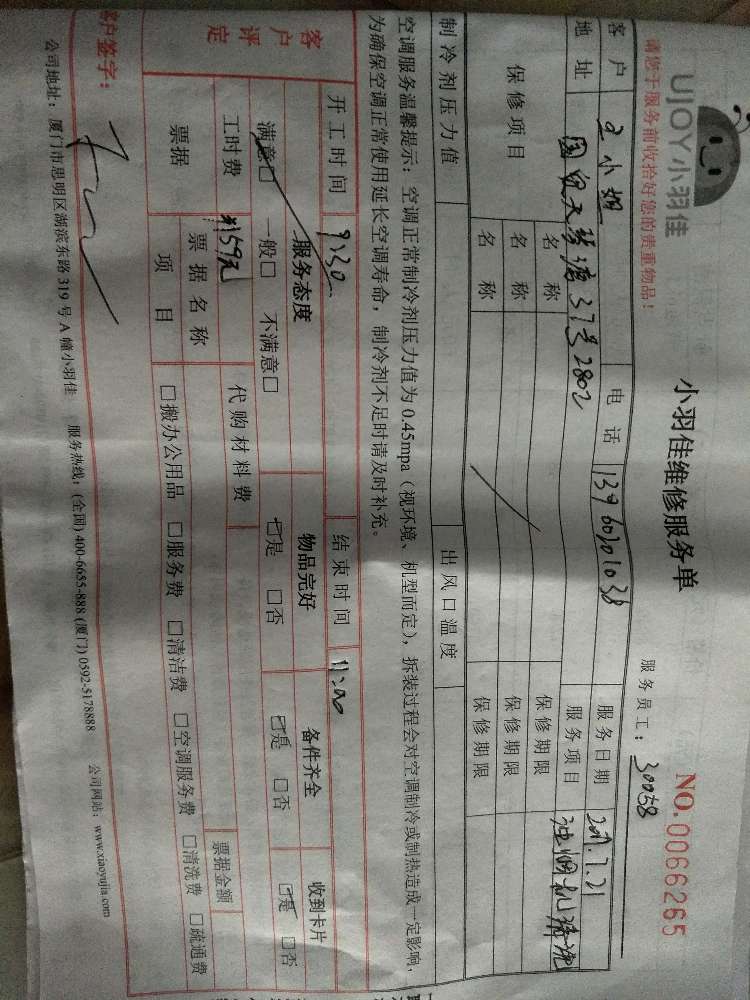 UJOY小羽佳
小羽佳维修服务单
NO.0066265
请您于服务前收拾好您的贵重物品!
服务员工: 30058
客户 王小姐 电话 服务日期
地址 国贸天琴湾37号2802 服务项目 油烟机清洗
保修项目 名称 保修期限
名称 保修期限
名称 保修期限
制冷剂压力值 出风口温度
空调服务温馨提示:空调正常制冷剂压力值为0.45mpa(视环境、机型而定),拆装过程会对空调制冷或制热造成一定影响,
为确保空调正常使用延长空调寿命,制冷剂不足时请及时补充。
开工时间 9:30 结束时间 11:00
客户评定 服务态度 物品完好 备件齐全 收到卡片
满意□ 一般□ 不满意□ □是 □否 □是 □否 □是 □否
工时费 159元 代购材料费 票据金额
票据 票据名称
项目 □搬办公用品 □服务费 □清洁费 □空调服务费 □清洗费 □疏通费
客户签字:
公司地址:厦门市思明区湖滨东路319号A幢小羽佳 服务热线:(全国)400-6655-888 (厦门)0592-5178888 公司网站:www.xiaoyujia.com